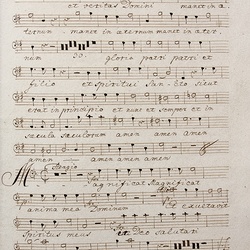 et veritas Domini manet in æ
ternum manet in æternum manet in æter
num gloria patri patri et
filio et Spiritui Sancto sicut
erat in principio et nunc et semper et in
sæcula sæculorum amen amen amen
amen amen
Adagio
Magnificat Magnificat
anima mea Dominum exultavit
Spiritus meus et Deo salutari